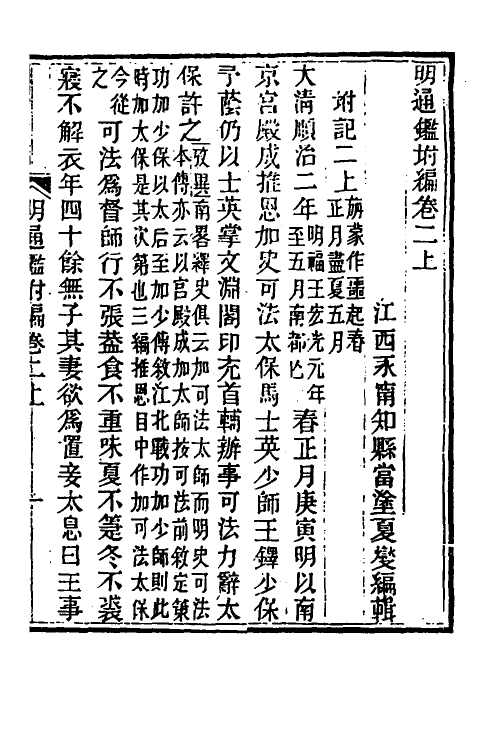 明通鑑坿編卷二上
江西永甯知縣當塗夏燮編輯
坿記二上
旃蒙作噩起春
正月盡夏五月
大清順治二年
明福王宏光元年
至五月南都亡
春正月庚寅明以南
京宮殿成推恩加史可法太保馬士英少師王鐸少保
予蔭仍以士英掌文淵閣印充首輔辦事可法力辭太
保許之
攷異南畧繹史俱云加可法太師而明史可法
本傳亦云以宮殿成加太師按可法前敘定策
功加少保以太后至加少傅敘江北戰功加少師則此
時加太保是其次第也三編推恩目中作加可法太保
今從
之
可法為督師行不張蓋食不重味夏不箑冬不裘
寢不解衣年四十餘無子其妻欲為置妾太息曰王事
明通鑑坿編卷二上
一